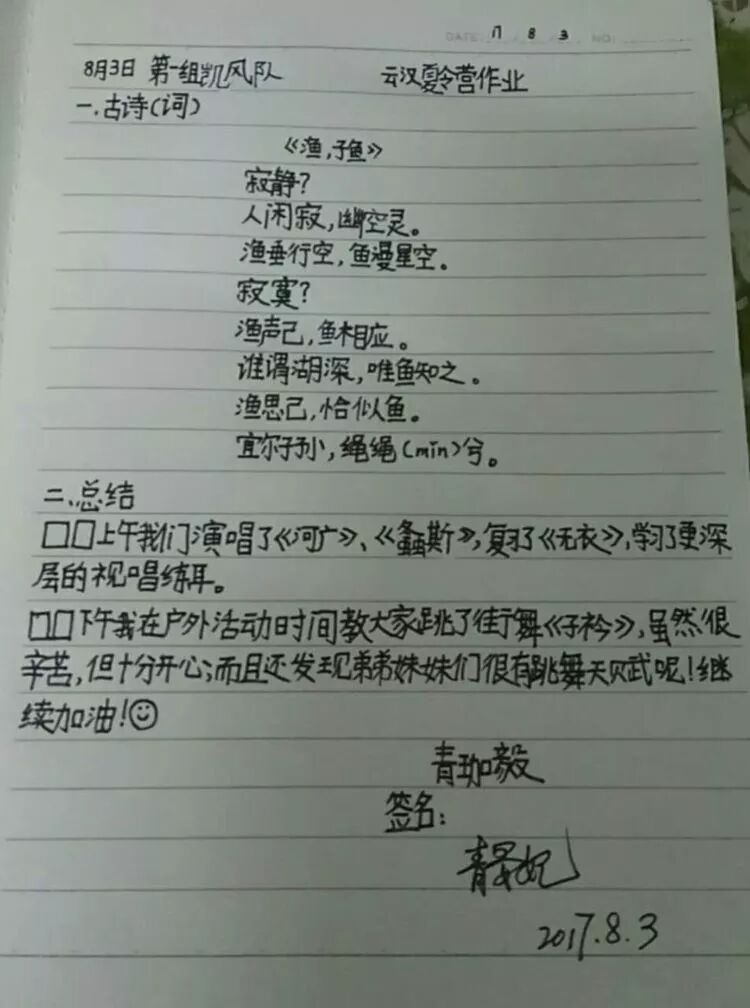 DATE 17 8 3 NO.
8月3日 第一组凯风队 云汉夏令营作业
一.古诗(词)
《渔,子鱼》
寂静?
人闲寂,幽空灵。
渔垂行空,鱼漫星空。
寂寞?
渔声己,鱼木相应。
谁谓湖深,唯鱼知之。
渔思己,恰似鱼。
宜尔子孙,绳绳(min)兮。
二.总结
□□上午我们演唱了《河广》、《螽斯》,复习了《无衣》,学习了更深
层的视唱练耳。
□□下午我在户外活动时间教大家跳了街舞《子衿》,虽然很
辛苦,但十分开心;而且还发现弟弟妹妹们很有跳舞天贝武呢!继
续加油!☺
青珈毅
签名:
2017.8.3